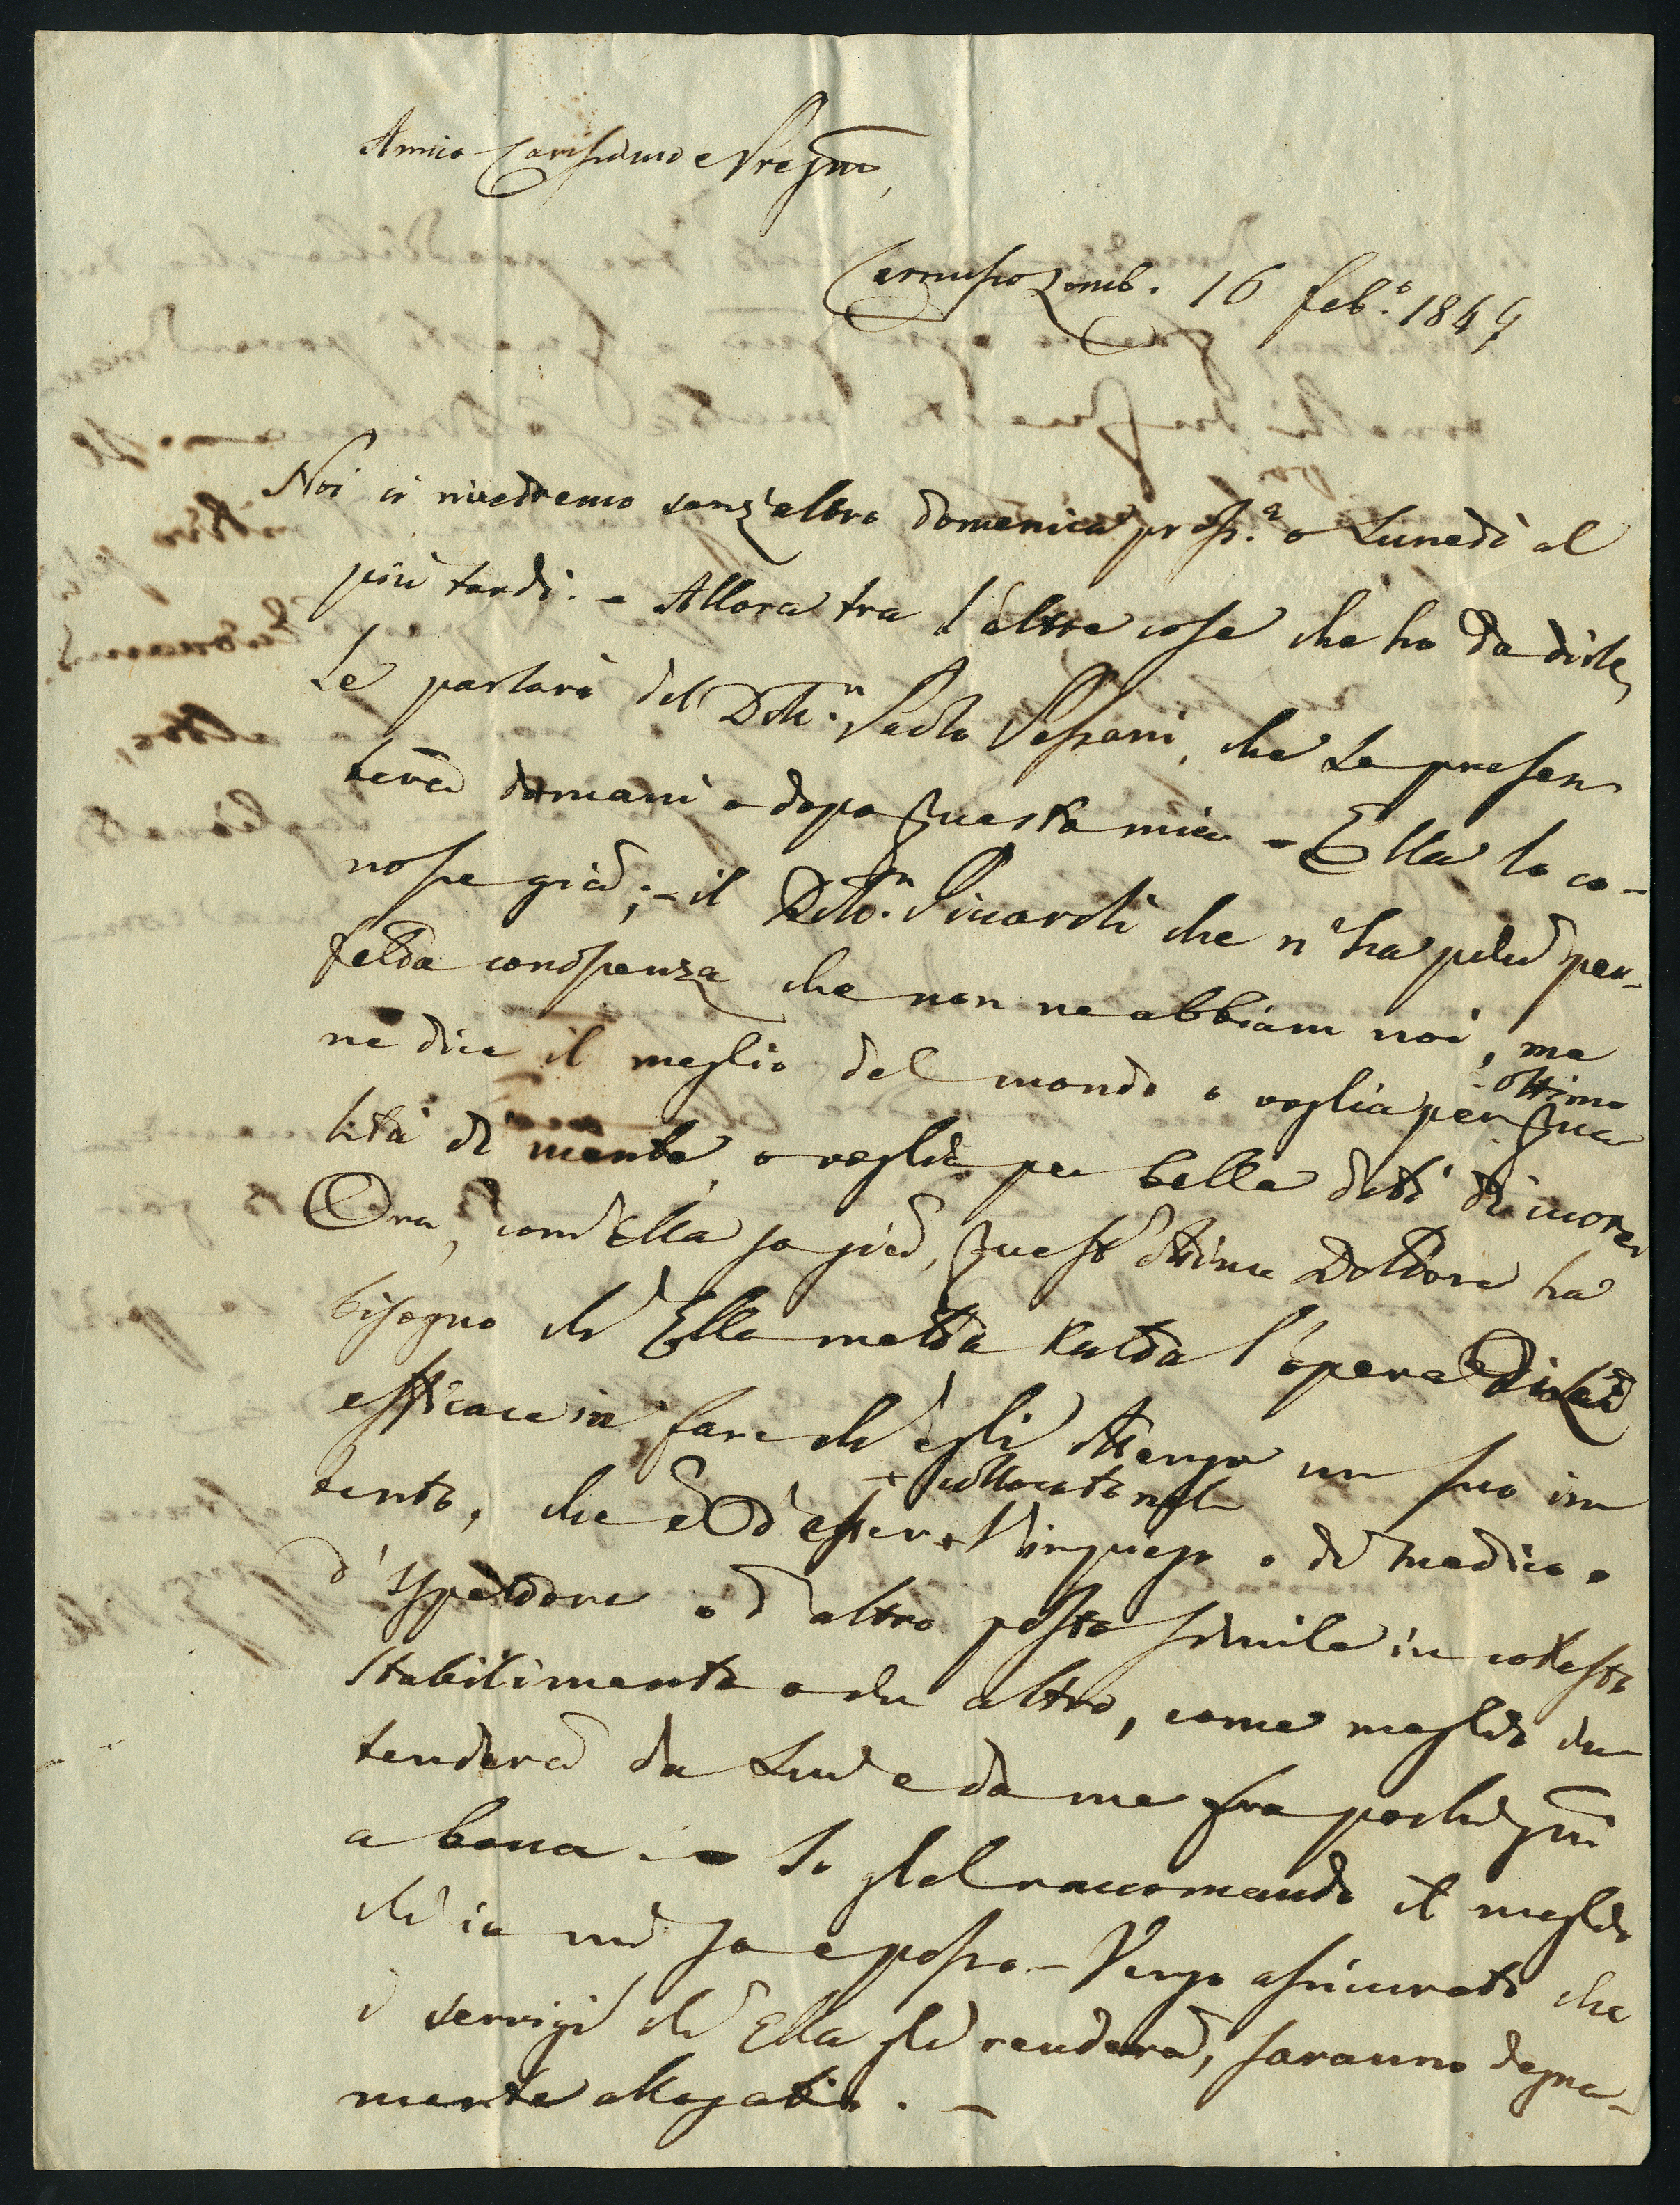 Amico Carissimo e Pregmo,
Cernusco Lomb. 16 feb.o 1847
Noi ci rivedremo senz'altro domenica pross.a o Lunedì al
più tardi. - Allora tra l'altre cose che ho da dirle,
Le parlerò del Dott.r Paolo che Le presen
terà domani o dopo questa mia - Ella lo co-
nosce già; - il Dott.r che n'ha più per-
fetta conoscenza che non ne abbiam noi, me
ne dice il meglio del mondo o voglia per ottime qua
lità di mente, o voglia per belle doti di cuore
Ora, com'Ella sa già, quest'ottimo Dottore ha
bisogno ch'Ella metta tutta l'opera di Lei
efficace in fare ch'egli ottenga un suo in
tento, che è d'esser + collocato nell'impiego o di medico o
d'ispettore o d'altro posto simile in codesto
Stabilimento o in altro, come meglio in
tenderà da Lui e da me fra pochi gni
a bocca. - Io glel raccomando il meglio
ch'io mi so e posso - Vengo assicurato che
i servigi ch'Ella gli renderà, saranno degna-
mente allogati. -